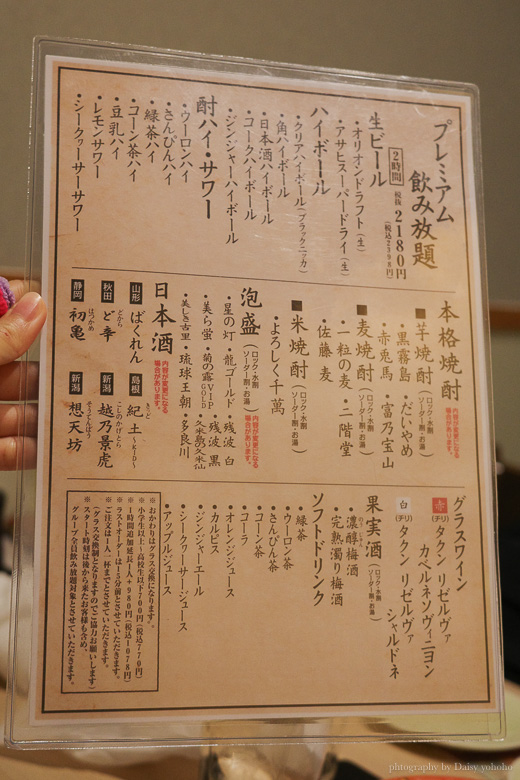 プレミアム
飲み放題
2時間
税抜
2180円
(税込2398円)
生ビール
・オリオンドラフト(生)
・アサヒスーパードライ(生)
ハイボール
・クリアハイボール(ブラックニッカ)
・角ハイボール
・日本酒ハイボール
・コークハイボール
・ジンジャーハイボール
酎ハイ・サワー
・ウーロンハイ
・さんぴんハイ
・緑茶ハイ
・コーン茶ハイ
・豆乳ハイ
・レモンサワー
・シークヮーサーサワー
本格焼酎
内容が変更になる
場合があります。
■芋焼酎(ロック・水割
ソーダー割・お湯)
・黒霧島 ・だいやめ
・赤兎馬 ・富乃宝山
■麦焼酎(ロック・水割
ソーダー割・お湯)
・一粒の麦・二階堂
・佐藤 麦
■米焼酎(ロック・水割
ソーダー割・お湯)
・よろしく千萬
泡盛(ロック・水割
ソーダー割・お湯)
内容が変更になる
場合があります。
・星の灯・龍ゴールド・残波 白
・美ら蛍・菊の露VIP GOLD・残波 黒
・久米島の久米仙
・美しき古里・琉球王朝・多良川
日本酒
内容が変更になる
場合があります。
山形 ばくれん
島根 紀土~KID~
きっど
秋田 ど辛
どから
新潟 越乃景虎
こしのかげとら
静岡 初亀
はつかめ
新潟 想天坊
そうてんぼう
グラスワイン
赤(チリ) タクン リゼルヴァ
カベルネソヴィニヨン
白(チリ) タクン リゼルヴァ
シャルドネ
果実酒(ロック・水割
ソーダー割・お湯)
・濃醇梅酒
・完熟濁り梅酒
ソフトドリンク
・緑茶
・ウーロン茶
・さんぴん茶
・コーン茶
・コーラ
・オレンジジュース
・カルピス
・ジンジャーエール
・シークヮーサージュース
・アップルジュース
※おかわりはグラス交換になります。
※小学生以上~高校生以下700円(税込770円)
※1時間追加延長1人+980円(税込1078円)
※ラストオーダーは15分前とさせていただきます。
※ご注文は1人一杯までとさせていただきます。
(グラス交換制となりますのでご協力お願いします)
※スタート時刻は後から来たお客様も含め、
グループ全員飲み放題対象とさせていただきます。
photography by Daisy yohoho